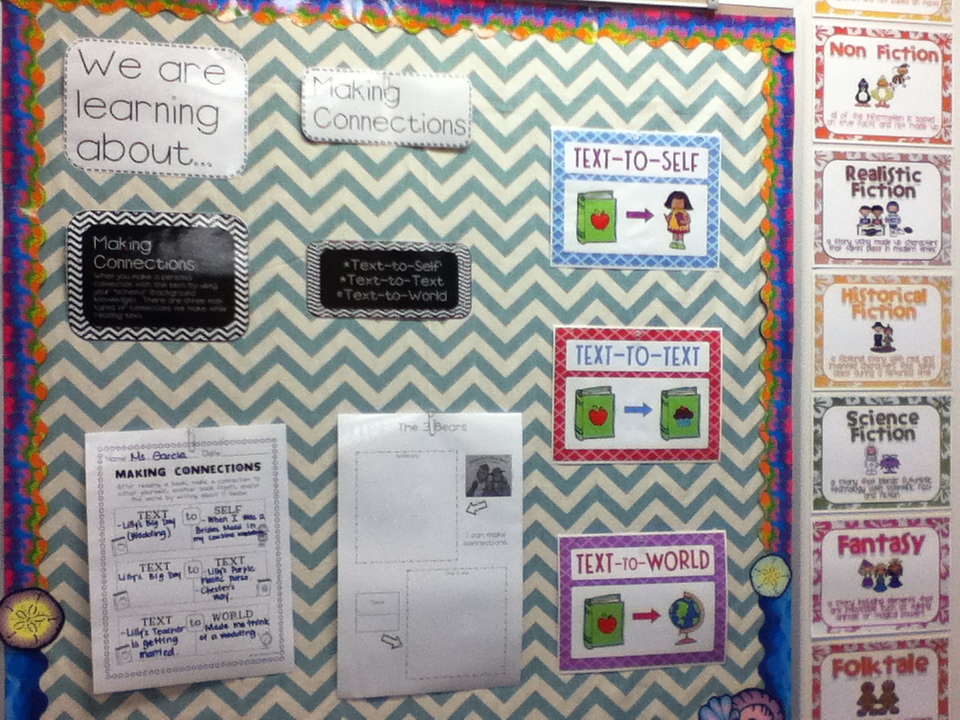 We are
learning
about...
Making
Connections
Making
Connections:
When you make a personal
connection with the text by using
your "schema" (background
knowledge). There are three main
types of connections we make while
reading text.
*Text-to-Self
*Text-to-Text
*Text-to-World
TEXT-TO-SELF
TEXT-TO-TEXT
TEXT-TO-WORLD
Name Ms. Garcia Date
MAKING CONNECTIONS
After reading a book, make a connection to
either yourself, another book (text), and/or
the world by writing about it below.
TEXT to SELF
-Lilly's Big Day
(Wedding)
-When I was a
Brides Maid in
my cousins wedding
TEXT to TEXT
Lilly's Big Day
-Lilly's Purple
Plastic Purse
-Chester's
Way.
TEXT to WORLD
-Lilly's Teacher
is getting
married.
Made me think
of a wedding
The 3 Bears
I can make
connections.
Non Fiction
all of the information is based
on true facts and not made up
Realistic
Fiction
a story using made up characters
that takes place in modern times
Historical
Fiction
a fictional story with real and
invented characters that takes
place during a historical time
Science
Fiction
a story that blends futuristic
technology with scientific fact
and fiction
Fantasy
a story including elements that
are impossible such as talking
animals or magical powers
Folktale